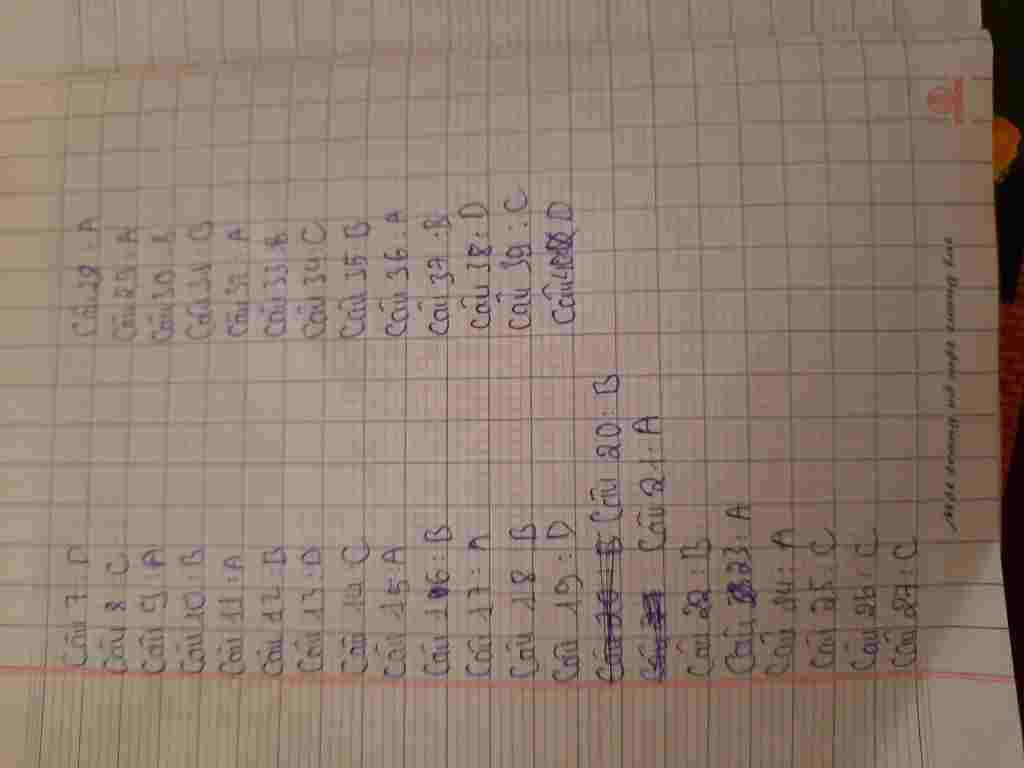 Câu 7: D
Câu 8: C
Câu 9: A
Câu 10: B
Câu 11: A
Câu 12: B
Câu 13: D
Câu 14 C
Câu 15 A
Câu 16: B
Câu 17: A
Câu 18 B
Câu 19: D
Câu 20: B
Câu 21: A
Câu 22: B
Câu 23: A
Câu 24: A
Câu 25: C
Câu 26: C
Câu 27: C
Câu 28: A
Câu 29: A
Câu 30: B
Câu 31:
Câu 32: A
Câu 33: B
Câu 34: C
Câu 35: B
Câu 36: A
Câu 37: B
Câu 38: D
Câu 39: C
Câu D